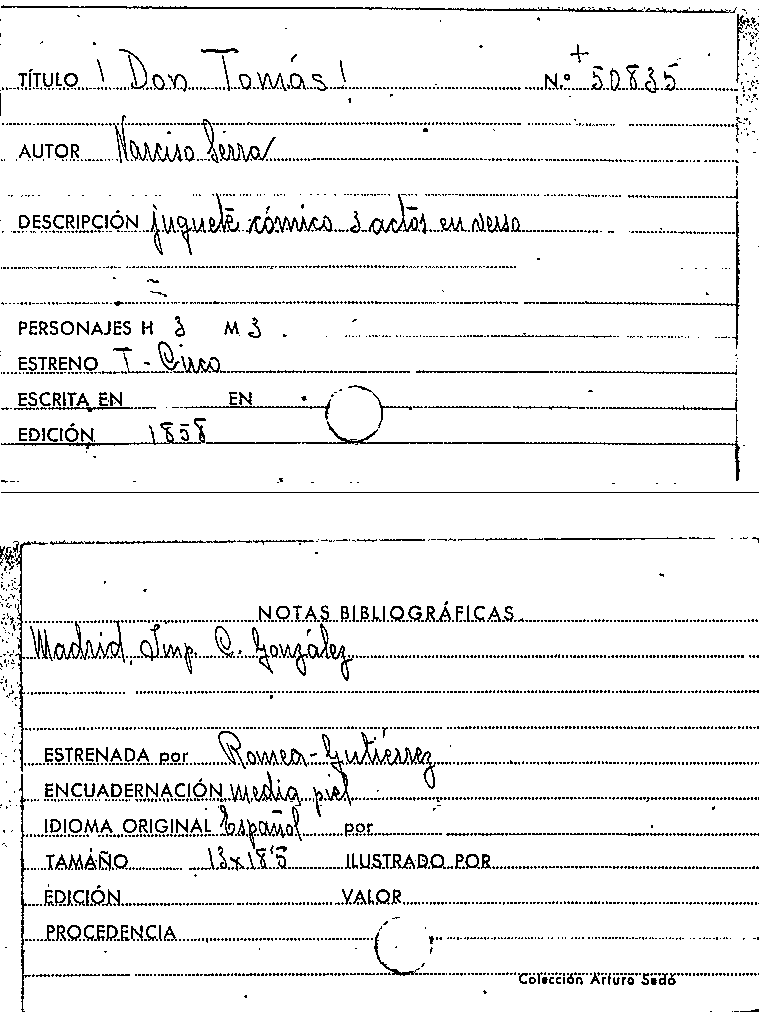 TÍTULO ¡Don Tomás! N.º + 50835
AUTOR Narciso Serra
DESCRIPCIÓN juguete cómico 3 actos en verso
PERSONAJES H 3 M 3.
ESTRENO T - Circo
ESCRITA EN EN
EDICIÓN 1858
NOTAS BIBLIOGRÁFICAS
Madrid, Imp. C. González
ESTRENADA por Romea-Gutiérrez
ENCUADERNACIÓN media piel
IDIOMA ORIGINAL Español por
TAMAÑO 13x18'5 ILUSTRADO POR
EDICIÓN VALOR
PROCEDENCIA
Colección Arturo Sedó